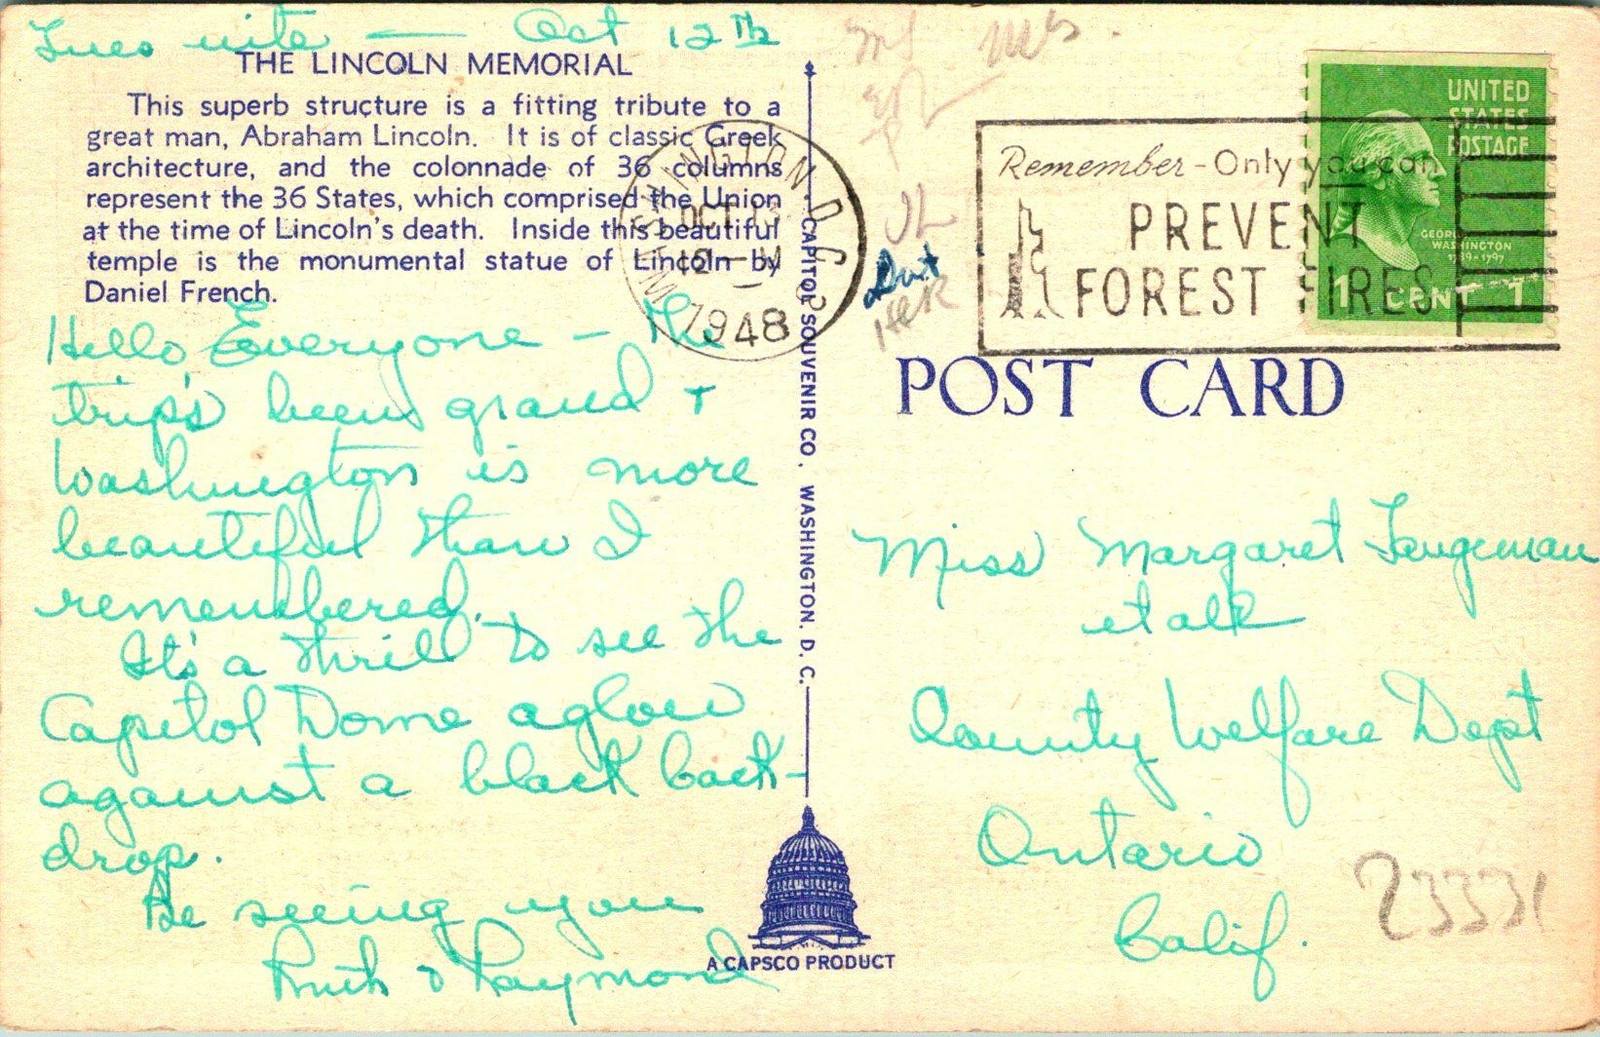 Tues nite — Oct 12th
THE LINCOLN MEMORIAL
This superb structure is a fitting tribute to a
great man, Abraham Lincoln. It is of classic Greek
architecture, and the colonnade of 36 columns
represent the 36 States, which comprised the Union
at the time of Lincoln's death. Inside this beautiful
temple is the monumental statue of Lincoln by
Daniel French.
Hello Everyone – The
trip's been grand +
Washington is more
beautiful than I
remembered.
It's a thrill to see the
Capitol Dome aglow
against a black back-
drop.
Be seeing you
Ruth & Raymond
WASHINGTON, D.C.
OCT
1948
CAPITOL SOUVENIR CO., WASHINGTON, D. C.
A CAPSCO PRODUCT
Remember - Only you can
PREVENT
FOREST FIRES
UNITED
STATES
POSTAGE
GEORGE
WASHINGTON
1789-1797
1 CENT 1
POST CARD
Miss Margaret
et all
County Welfare Dept
Ontario
Calif.
23331